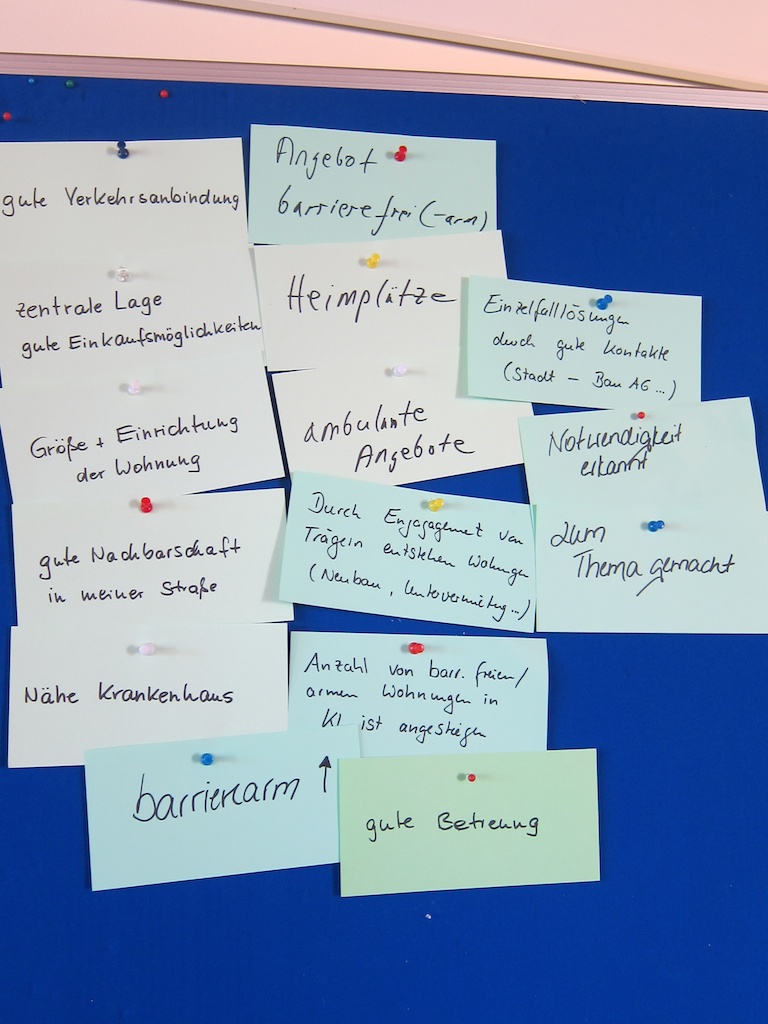 gute Verkehrsanbindung
zentrale Lage
gute Einkaufsmöglichkeiten
Größe + Einrichtung
der Wohnung
gute Nachbarschaft
in meiner Straße
Nähe Krankenhaus
barrierearm ↑
Angebot
barrierefrei (-arm)
Heimplätze
ambulante
Angebote
Durch Engagagemet von
Trägern entstehen Wohnungen
(Neubau, Untervermietung...)
Anzahl von barr. freien/
armen Wohnungen in
KI ist angestiegen
gute Betreuung
Einzelfalllösungen
durch gute Kontakte
(Stadt - Bau AG...)
Notwendigkeit
erkannt
zum
Thema gemacht